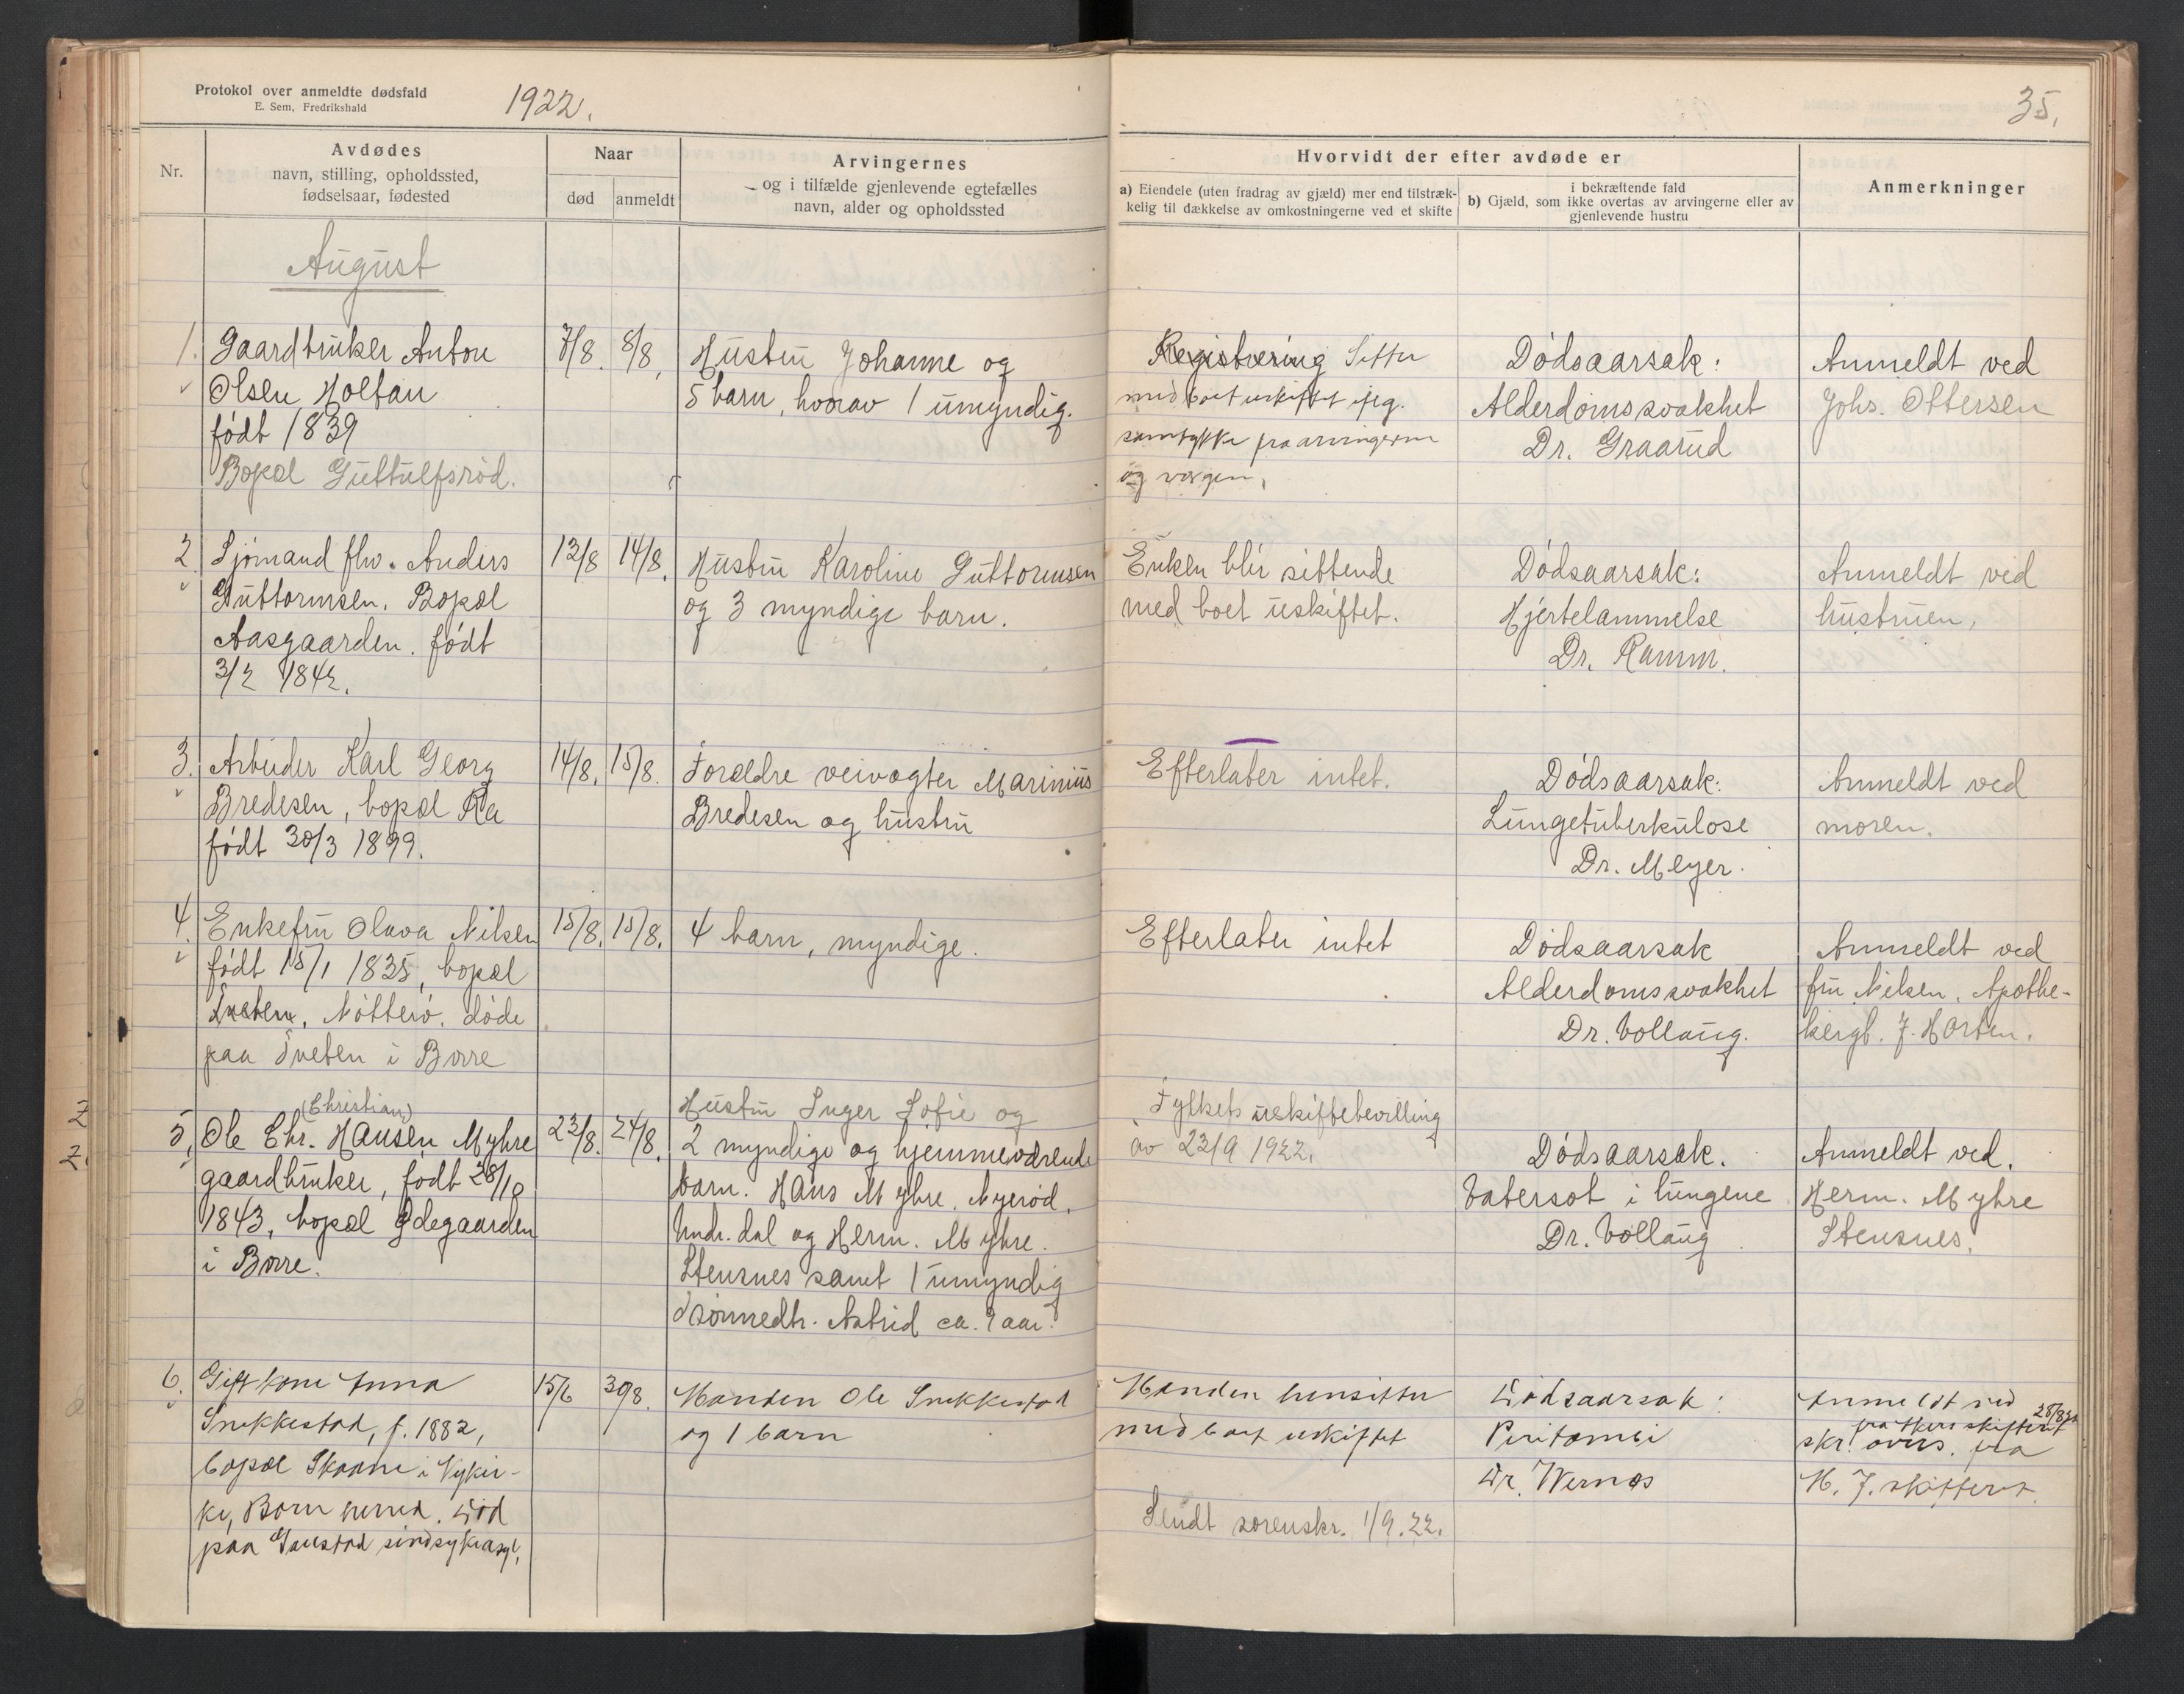 Protokol over anmeldte dødsfald
E. Sem, Fredrikshald
1922.
35.
Nr.
Avdødes
navn, stilling, opholdssted,
fødselsaar, fødested
Naar
død
anmeldt
Arvingernes
og i tilfælde gjenlevende egtefælles
navn, alder og opholdssted
Hvorvidt der efter avdøde er
a) Eiendele (uten fradrag av gjæld) mer end tilstræk-
kelig til dækkelse av omkostningerne ved et skifte
i bekræftende fald
b) Gjæld, som ikke overtas av arvingerne eller av
gjenlevende hustru
Anmerkninger
August
1.
Gaardbruker Anton
Olsen Holtan
født 1839
Bopæl Guttulfsrød.
7/8.
8/8.
Hustru Johanne og
5 barn, hvorav 1 umyndig.
Registrering Sitter
med boet uskiftet ifg.
samtykke fra arvingerne
og vergen.
Dødsaarsak:
Alderdomssvakhet
Dr. Graarud
Anmeldt ved
Johs. Ottersen
2
Sjømand fhv. Anders
Guttormsen. Bopæl
Aasgaarden. født
3/2 1842.
13/8
14/8.
Hustru Karoline Guttormsen
og 3 myndige barn.
Enken blir sittende
med boet uskiftet.
Dødsaarsak:
Hjertelammelse
Dr. Ramm.
Anmeldt ved
hustruen.
3.
Arbeider Karl Georg
Bredesen, bopæl Ra
født 30/3 1899.
14/8.
15/8.
Forældre veivogter Marinius
Bredesen og hustru
Efterlater intet.
Dødsaarsak:
Lungetuberkulose
Dr. Meyer.
Anmeldt ved
moren.
4.
Enkefru Olava Nilsen
født 15/1 1835, bopæl
Tveten, Nøtterø. døde
paa Tveten i Borre
15/8.
15/8.
4 barn, myndige.
Efterlater intet
Dødsaarsak
Alderdomssvakhet
Dr. Vollaug.
Anmeldt ved
fru Nilsen, Apothe-
kergt. 7. Horten.
5.
(Christian)
Ole Chr. Hansen Myhre
gaardbruker, født 28/10
1843, bopæl Ødegaarden
i Borre.
23/8.
24/8.
Hustru Inger Sofie og
2 myndige og hjemmeværende
barn. Hans Myhre. Nyerød,
Undr.dal og Herm. Myhre.
Stensnes samt 1 umyndig
sønnedtr. Astrid ca. 9 aar.
Fylkets uskiftebevilling
av 23/9 1922.
Dødsaarsak.
Vatersot i lungene
Dr. Vollaug
Anmeldt ved.
Herm. Myhre
Stensnes.
6.
Gift kone Anna
Snekkestad, f. 1882,
bopæl Skaane i Nykir-
ke, Borre herred. Død
paa Gaustad sindsykeasyl.
15/6
30/8.
Manden Ole Snekkestad
og 1 barn
Manden hensitter
med boet uskiftet
Sendt sorenskr. 1/9.22.
Dødsaarsak:
Peritonei
Dr. Wernøs
Anmeldt ved
28/8 22
fra Akers skifteret
skr. overs. fra